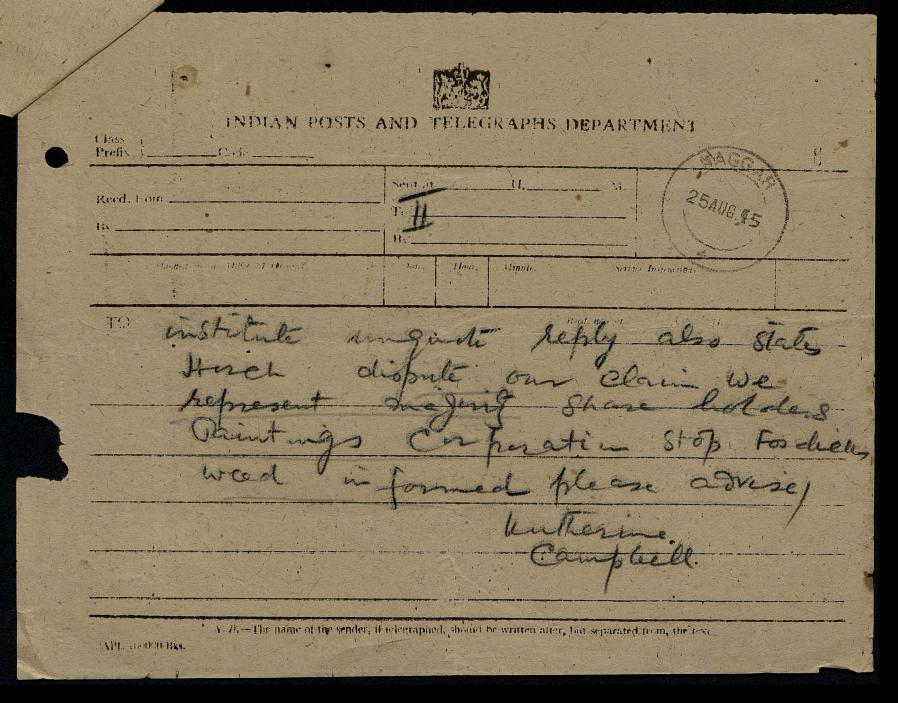 INDIAN POSTS AND TELEGRAPHS DEPARTMENT
Class
Prefix Code
Sent at H. M.
Recd. from
To
II
By
By
NAGGAR
25 AUG. 45
Date. Hour. Minute. Service Instructions
TO
institute unquote reply also states
Horch dispute our claim we
represent majority share holders
Paintings Corporation Stop Fosdicks
wood informed please advise/
Katherine.
Campbell.
N. B.—The name of the sender, if telegraphed, should be written after, but separated from, the text.